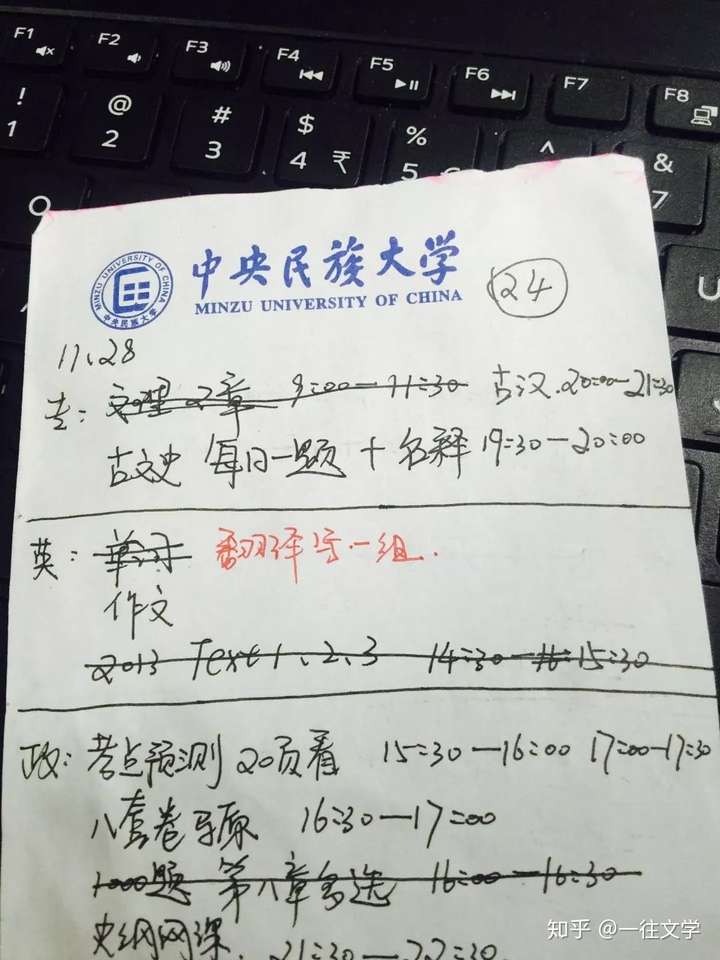 F1 F2 F3 F4 F5 F6 F7 F8
! @ # $ % ^ &
1 2 3 4 ₹ 5 € 7
Q U
中央民族大学
MINZU UNIVERSITY OF CHINA
MINZU UNIVERSITY OF CHINA
中央民族大学
24
11、28
专：文理2章 9:00—11:30 古汉.20:00—21:30
古文史 每日一题 + 名释 19:30—20:00
英：单词 翻译写一组.
作文
2013 Text 1、2、3 14:30—16:15:30
政：考点预测 20页看 15:30—16:00 17:00—17:30
八套卷 16:30—17:00
1000题 第八章多选 16:00—16:30
史纲网课. 21:30—22:30
知乎 @一往文学